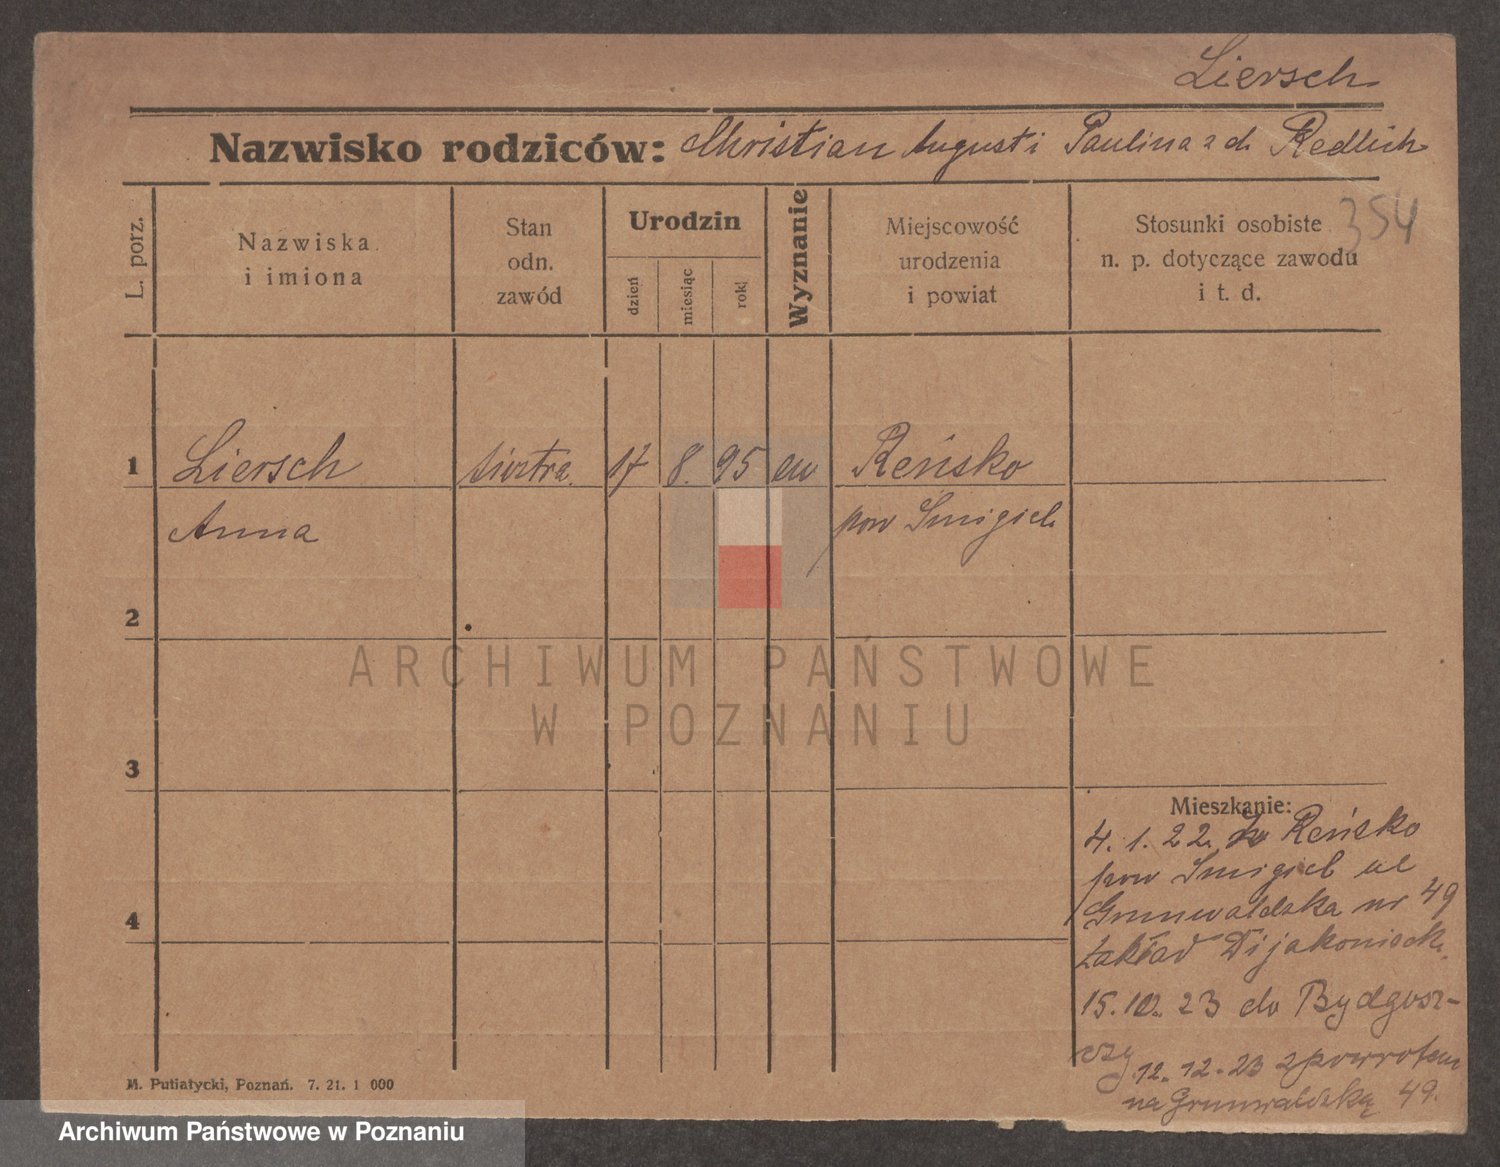 Liersch
Nazwisko rodziców: Christian August i Paulina z d. Redlich
354
L. porz.
Nazwiska i imiona
Stan odn. zawód
Urodzin
dzień
miesiąc
rok
Wyznanie
Miejscowość urodzenia i powiat
Stosunki osobiste n. p. dotyczące zawodu i t. d.
1 Liersch siostra 17 8. 95 ew Reńsko
Anna pow Śmigiel
2
3
4
ARCHIWUM PAŃSTWOWE
W POZNANIU
Mieszkanie:
4. 1. 22. z Reńsko
pow Śmigiel ul
Grunwaldzka nr 49
zakład Dijakonisek.
15. 10. 23 do Bydgosz-
czy
12. 12. 23 z powrotem
na Grunwaldzką 49.
M. Putiatycki, Poznań. 7. 21. 1 000
Archiwum Państwowe w Poznaniu